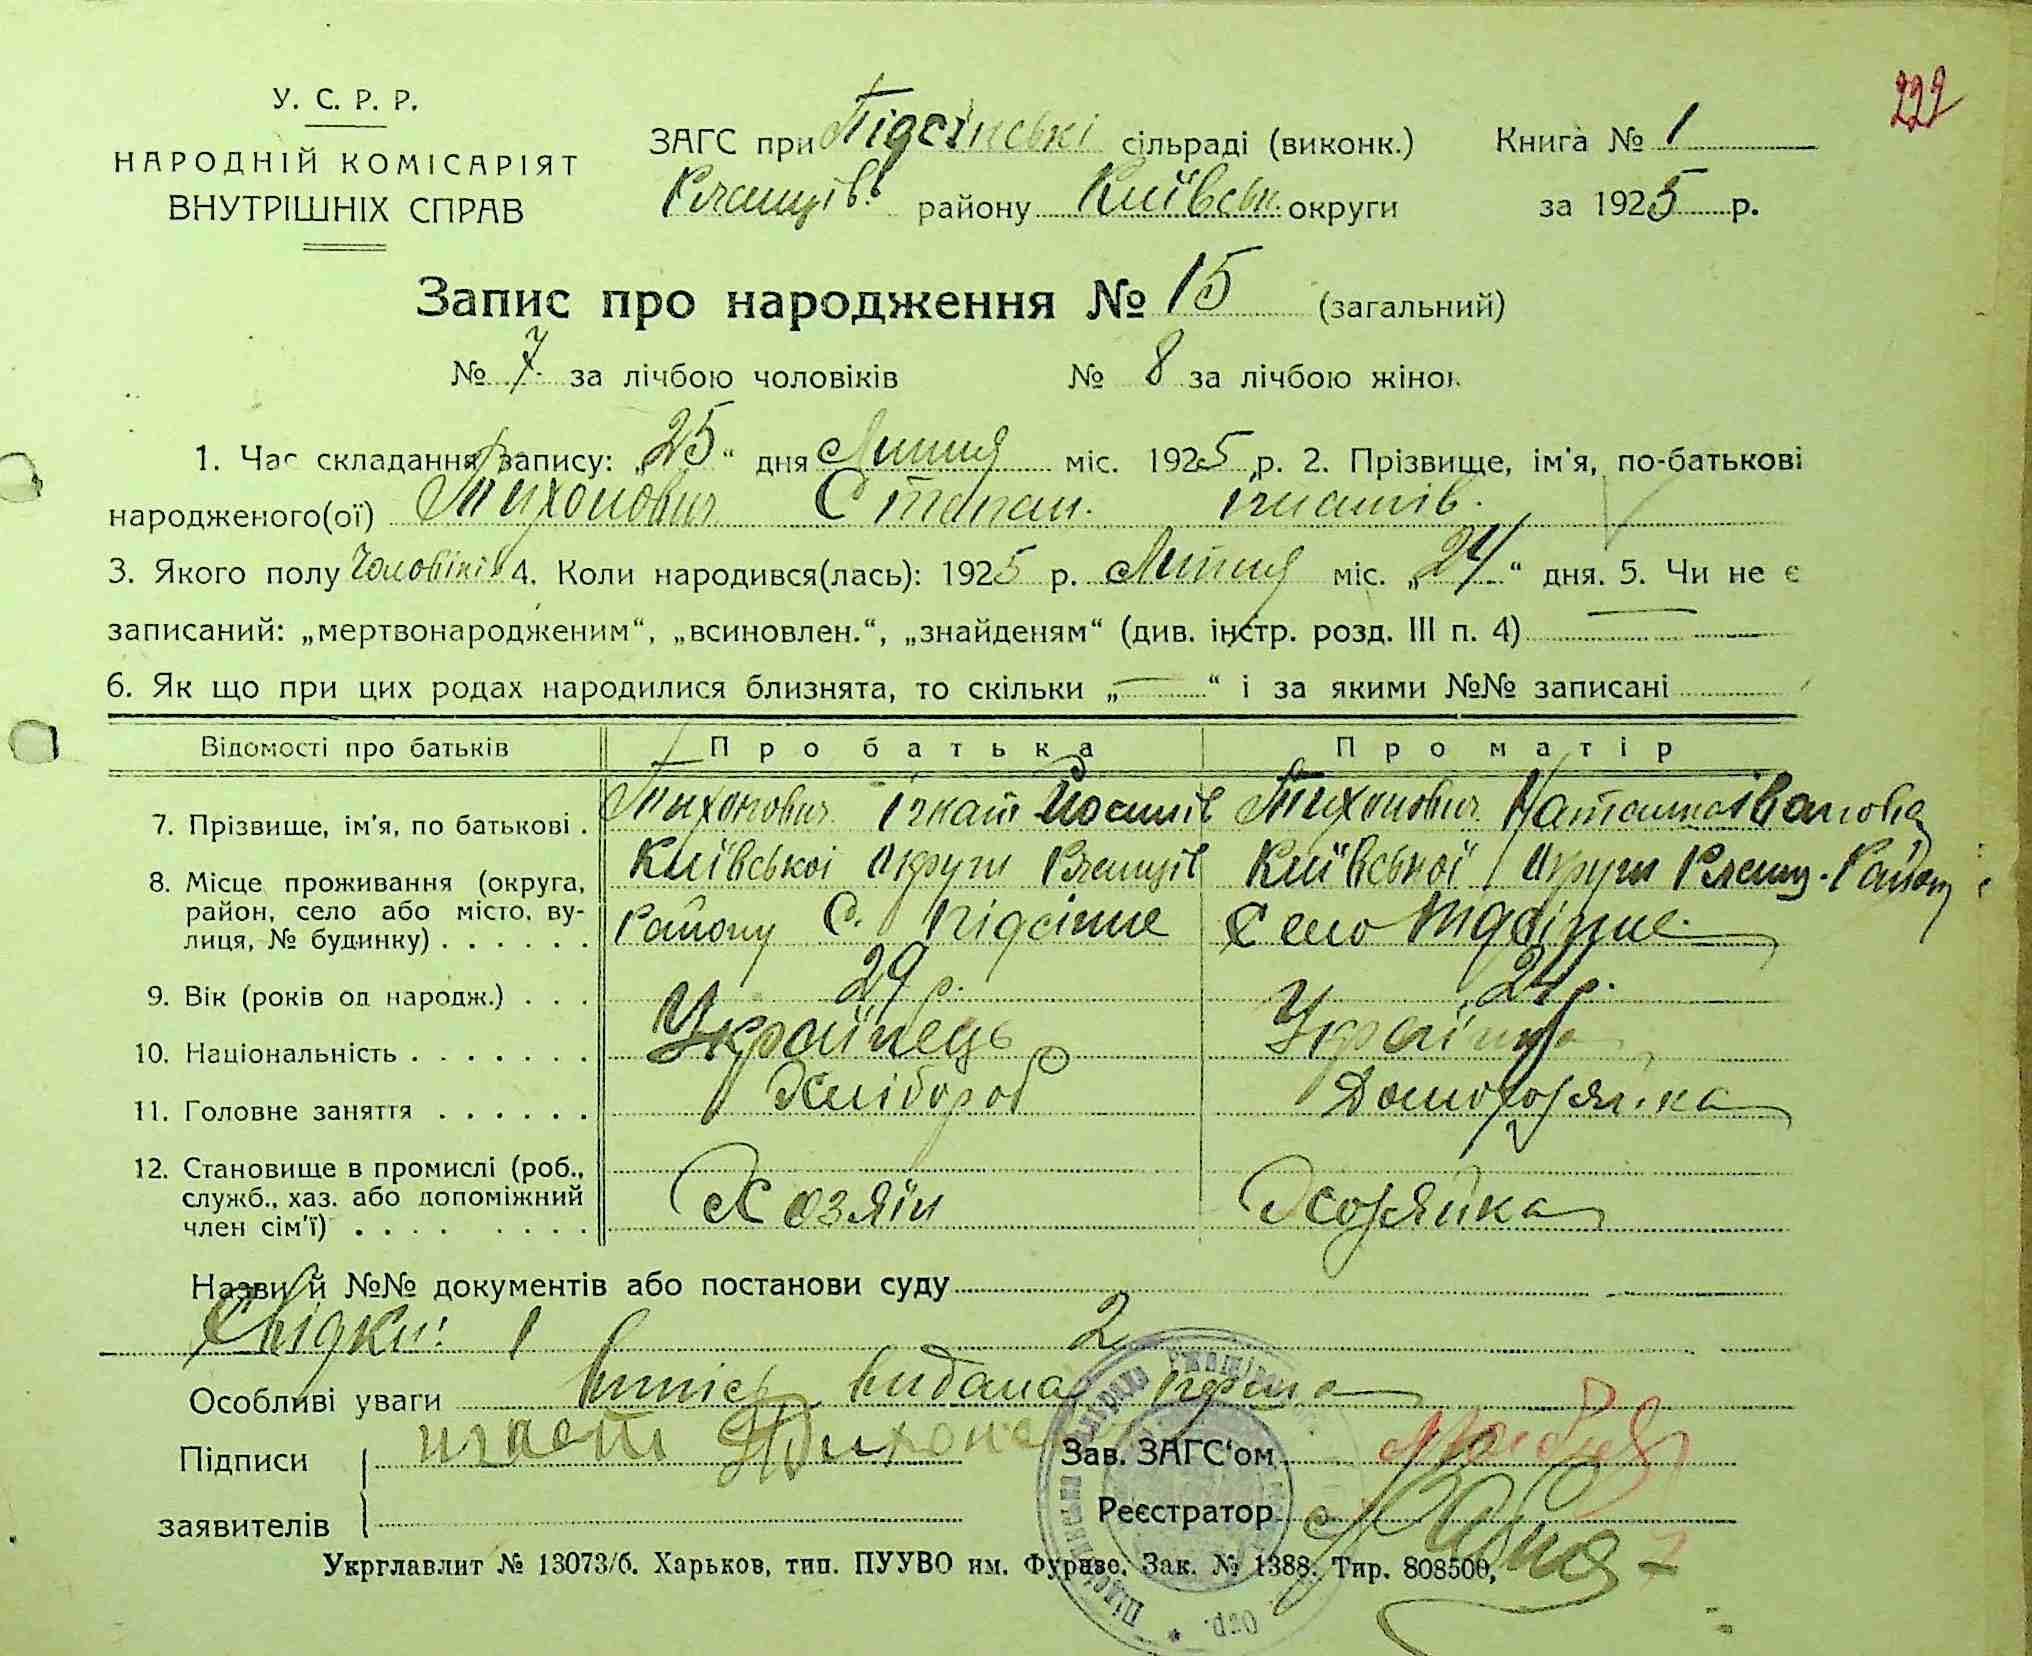 222
У. С. Р. Р.
НАРОДНІЙ КОМІСАРІЯТ
ВНУТРІШНІХ СПРАВ
ЗАГС при Підсінські сільраді (виконк.) Книга № 1
Ржищів. району Київськ. округи за 1925 р.
Запис про народження № 15 (загальний)
№ 7 за лічбою чоловіків № 8 за лічбою жінок
1. Час складання запису: „25“ дня Липня міс. 1925 р. 2. Прізвище, ім'я, по-батькові
народженого(ої) Тихонович Степан. Ігнатів.
3. Якого полу Чоловіків 4. Коли народився(лась): 1925 р. Липня міс. „24“ дня. 5. Чи не є
записаний: „мертвонародженим“, „всиновлен.“, „знайденям“ (див. інстр. розд. III п. 4)
6. Як що при цих родах народилися близнята, то скільки „—“ і за якими №№ записані
Відомості про батьків Про батька Про матір
7. Прізвище, ім'я, по батькові . Тихонович Ігнат Йосипів Тихонович Наталка Іванова
8. Місце проживання (округа, Київської Округи Ржищів Київської Округи Ржищ. Району
район, село або місто, ву- Району С. Підсінне Село Підсінне.
лиця, № будинку) . . . . . .
9. Вік (років од народж.) . . . 29 р. 24 р.
10. Національність . . . . . . . Українець Українка
11. Головне заняття . . . . . . Хлібороб Домохозяйка
12. Становище в промислі (роб.,
служб., хаз. або допоміжний Хозяїн Хозяйка
член сім'ї) . . . . . . . .
Назви й №№ документів або постанови суду
Свідки: 1 2
Особливі уваги видана
Підписи Ігнат Тихоно Зав. ЗАГС'ом
заявителів Реєстратор
Укрглавлит № 13073/б. Харьков, тип. ПУУВО им. Фрунзе. Зак. № 1388. Тир. 808500,